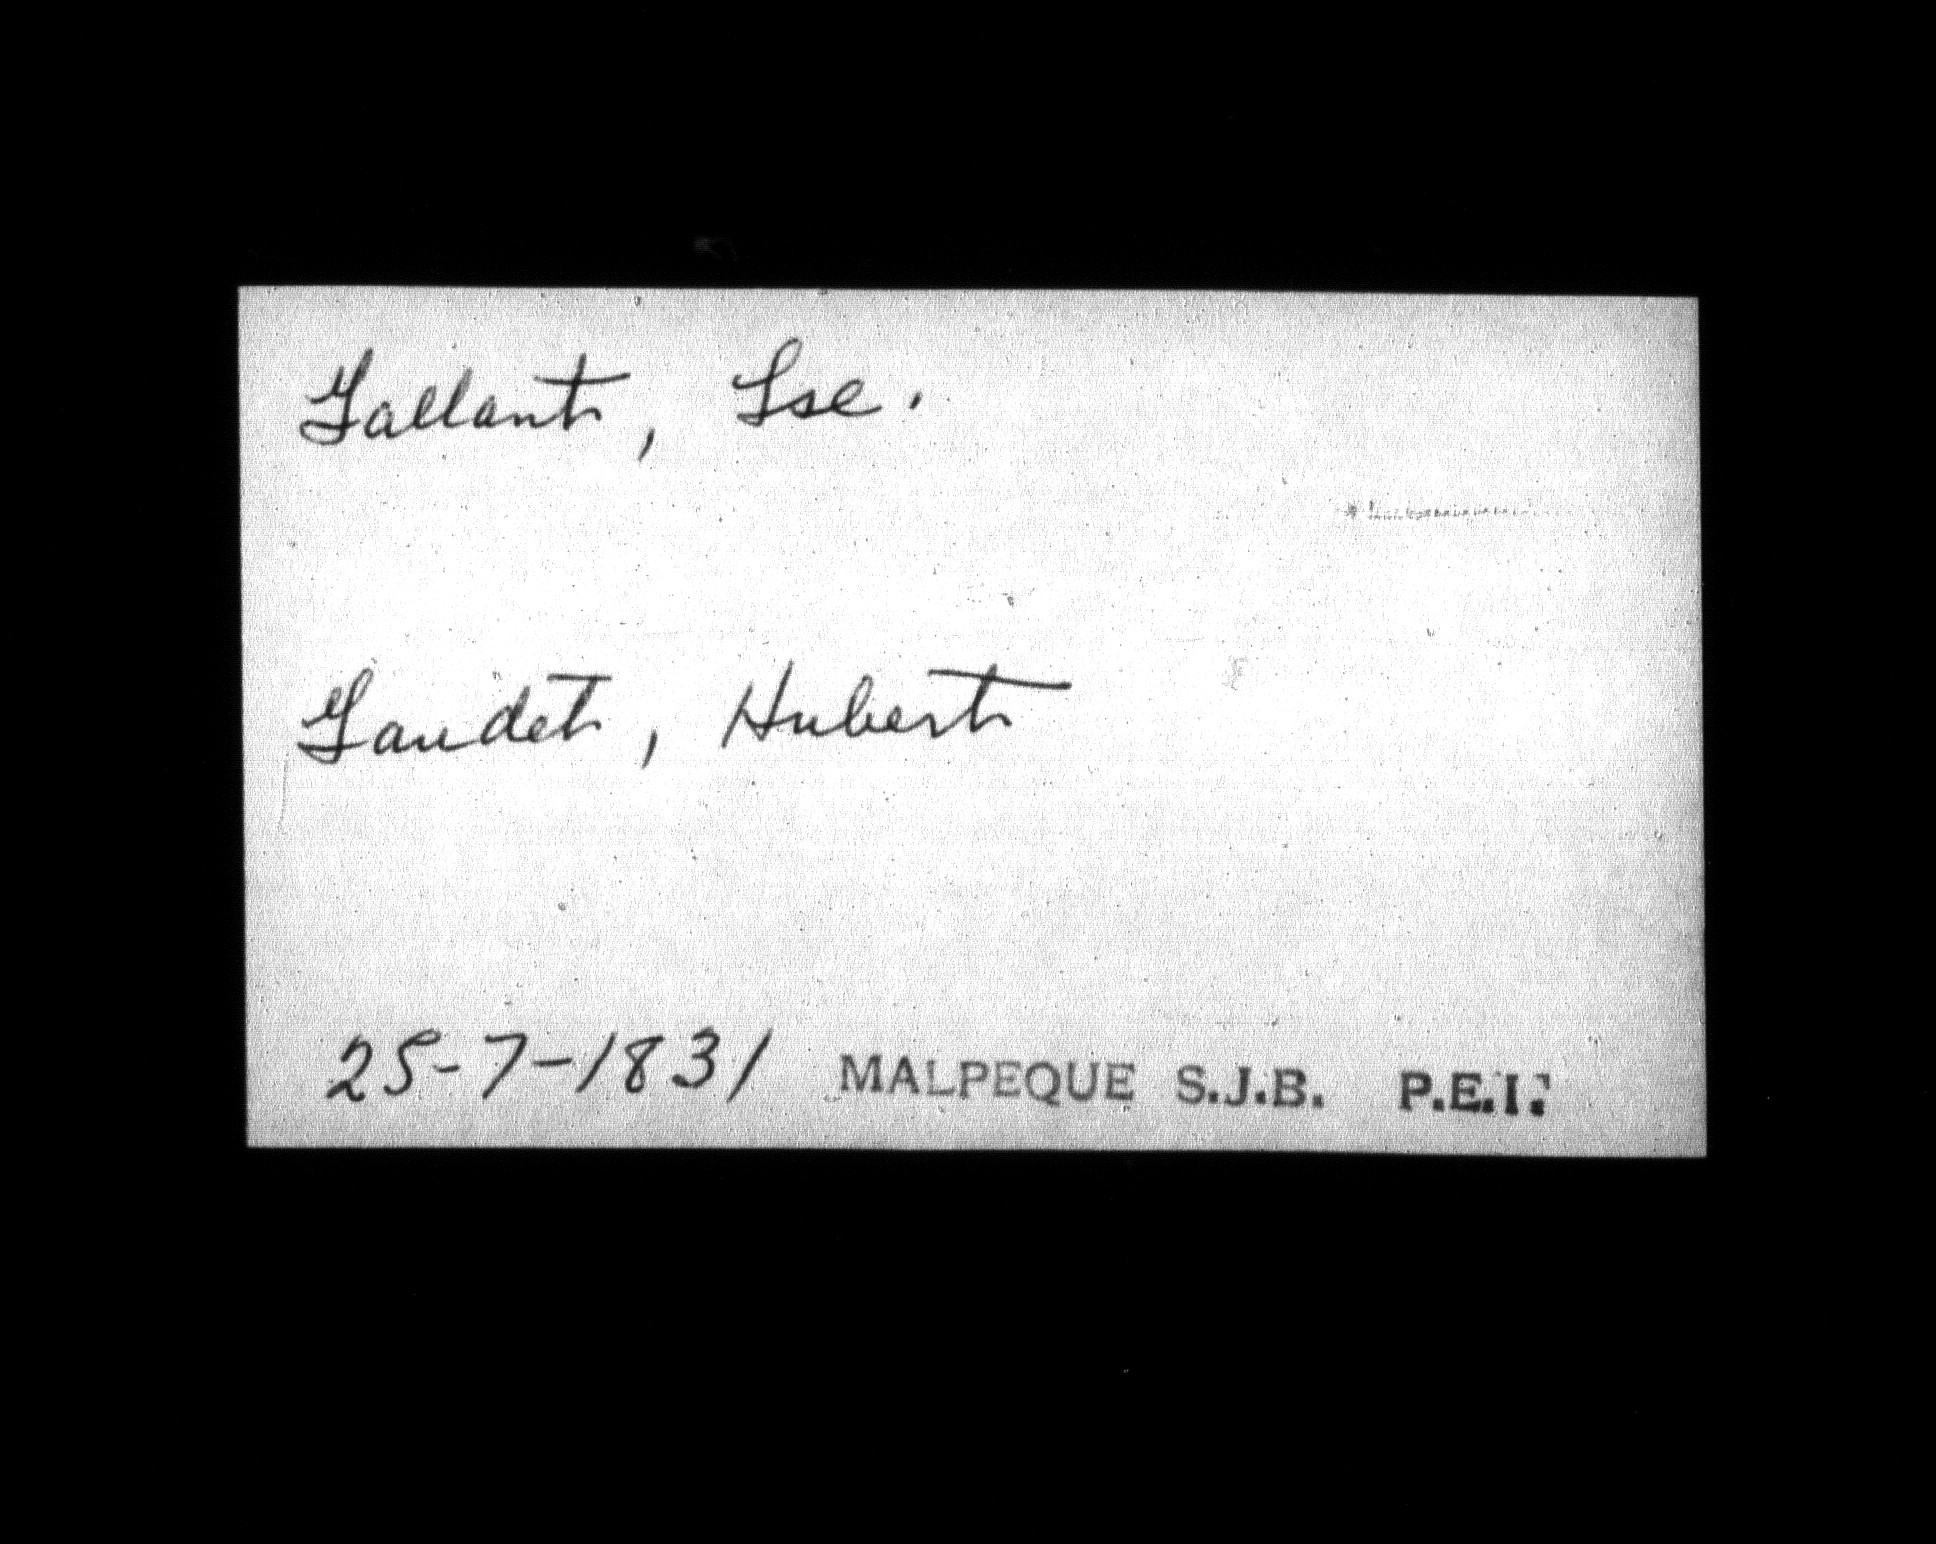 Gallant, Lse.
Gaudet, Hubert
25-7-1831 MALPEQUE S.J.B. P.E.I.